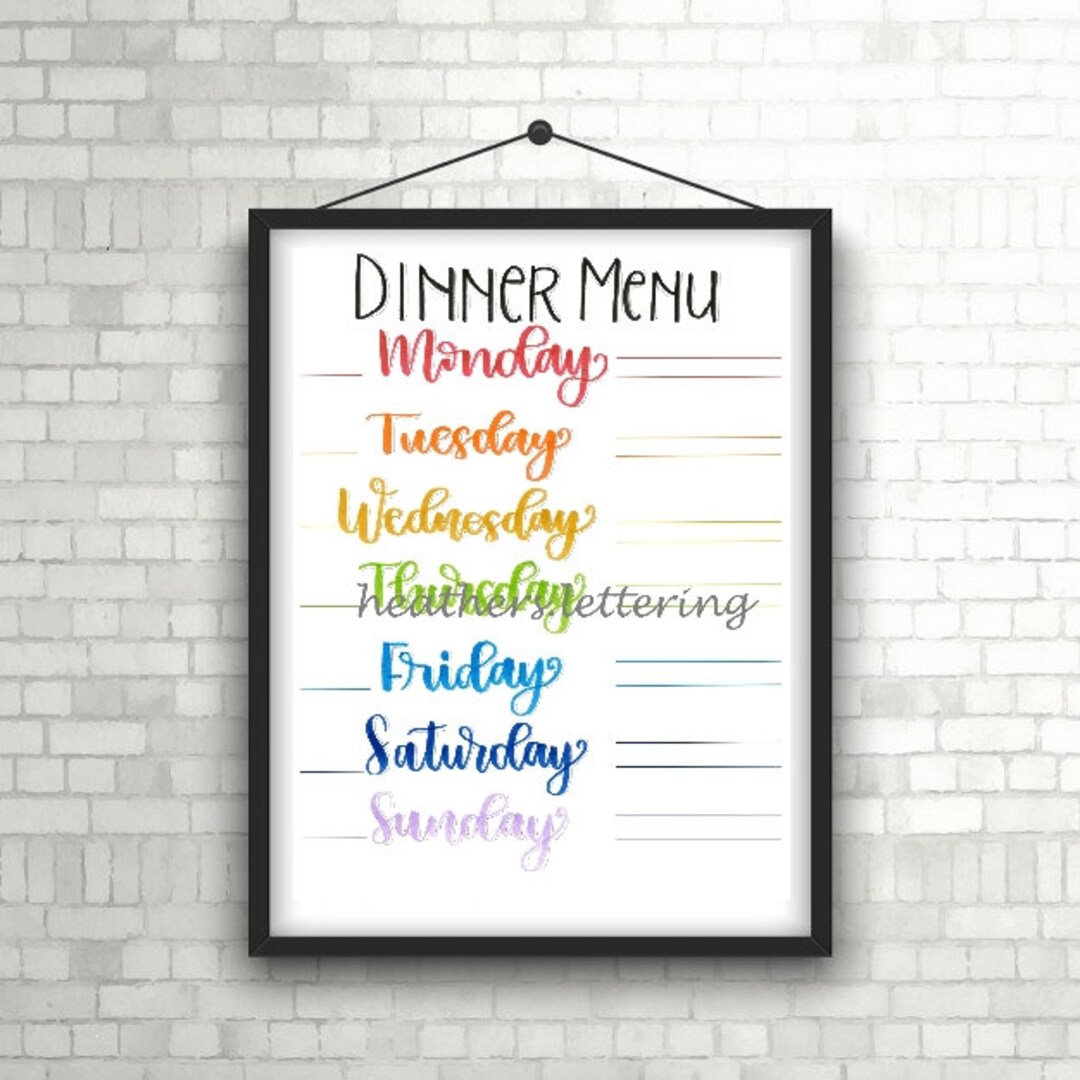 DINNER MENU
Monday
Tuesday
Wednesday
Thursday
heathers.lettering
Friday
Saturday
Sunday